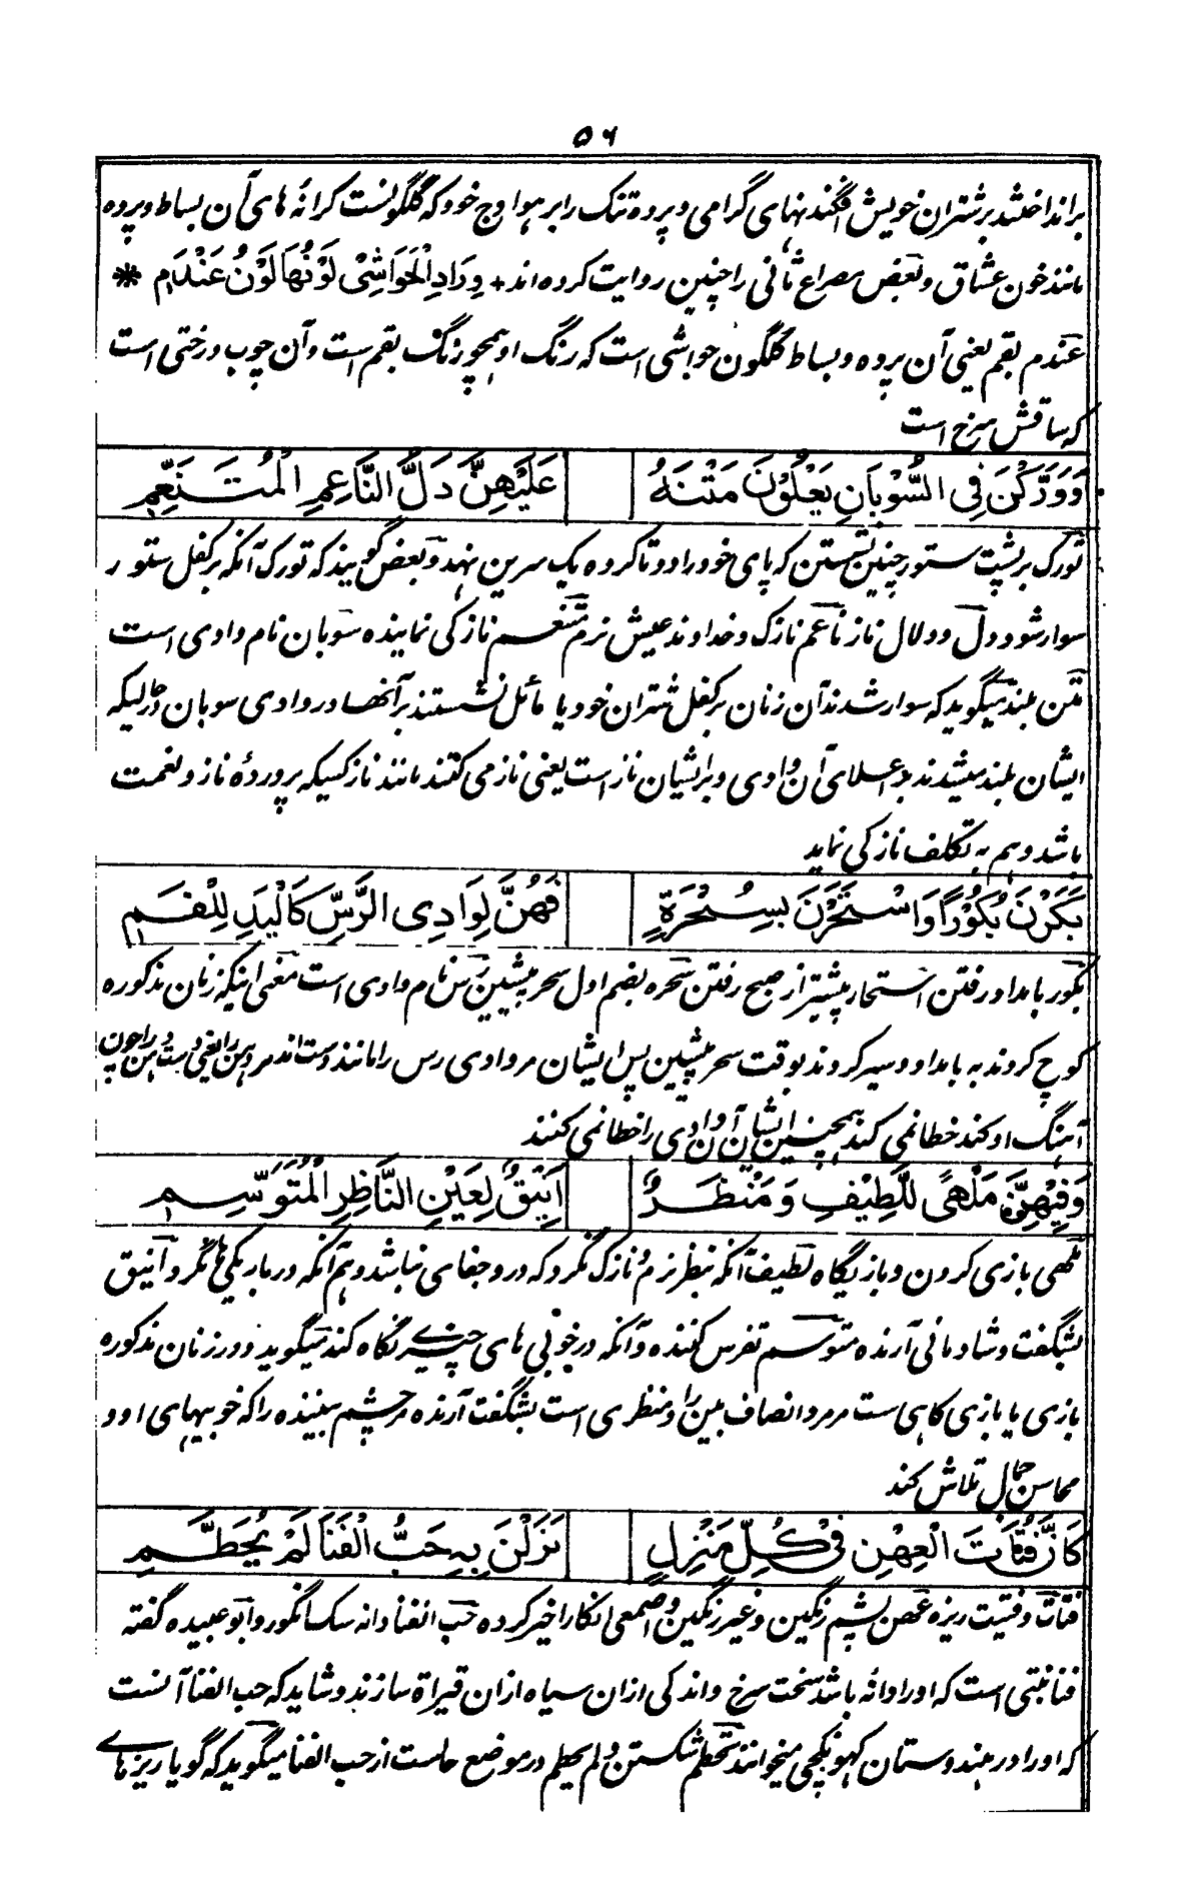 ۵۶
برانداختند بر شتران خویش افگندنیهای گرامی و پرده تنک را بر هوادج خود که گلگونست کرانه های آن بساط و پرده
مانند خون عشاق و بعض مصراع ثانی را چنین روایت کرده اند + وِرَادِ الْحَوَاشِیْ لَوْنُهَا لَوْنُ عَنْدَمِ *
عندم بقم یعنی آن پرده و بساط گلگون حواشی است که رنگ او همچو رنگ بقم است و آن چوب درختی است
که ساقش سرخ است
وَوَرَّكْنَ فِی السُّوْبَانِ یَعْلُوْنَ مَتْنَهُ عَلَیْهِنَّ دَلُّ النَّاعِمِ الْمُتَنَعِّمِ
تورک بر پشت ستور چنین نشستن که پای خود را دوتا کرده یک سرین نهد و بعض گویند که تورک آنکه بر کفل ستور
سوار شود دل و دلال ناز ناعم نازک و خداوند عیش نرم متنعم نازکی نماینده سوبان نام وادی است
متن بلند میگوید که سوار شدند آن زنان بر کفل شتران خود یا مائل نشستند بر آنها در وادی سوبان در حالیکه
ایشان بلند میشدند بر اعلای آن وادی و بر ایشان ناز است یعنی ناز می کنند مانند ناز کسیکه پروردۀ ناز و نعمت
باشد و هم به تکلف نازکی نماید
بَكَرْنَ بُكُوْرًا وَاسْتَحَرْنَ بِسُحْرَةٍ فَهُنَّ لِوَادِی الرَّسِّ كَالْیَدِ لِلْفَمِ
بکور بامداد رفتن استحار پیشتر از صبح رفتن سحره بضم اول سحر پیشین رس نام وادی است معنی اینکه زنان مذکوره
کوچ کردند به بامداد و سیر کردند بوقت سحر پیشین پس ایشان مر وادی رس را مانند دست اند مر دهن را یعنی دست دهن را چون
آهنگ او کند خطا نمی کند همچنین ایشان آن وادی را خطا نمی کنند
وَفِیْهِنَّ مَلْهًی لِلَّطِیْفِ وَمَنْظَرٌ اَنِیْقٌ لِعَیْنِ النَّاظِرِ الْمُتَوَسِّمِ
ملهی بازی کردن و بازیگاه لطیف آنکه بنظر نرم و نازک نگرد که درو جفای نباشد و هم آنکه در باریکی ها نگرد انیق
بشگفت و شادمانی آرنده متوسم تفرس کننده و آنکه در خوبی های چیزی نگاه کند میگوید و در زنان مذکوره
بازی یا بازی گاهی ست مر مرد انصاف بین را و منظری است بشگفت آرنده مر چشم بیننده را که خوبیهای او و
محاسن جمال تلاش کند
كَاَنَّ فُتَاتَ الْعِهْنِ فِیْ كُلِّ مَنْزِلٍ نَزَلْنَ بِهِ حَبُّ الْفَنَا لَمْ یُحَطَّمِ
فتات و فتیت ریزه عهن پشم رنگین و غیر رنگین و اصمعی انکار اخیر کرده حب الفنا دانه سگ انگور و ابو عبیده گفته
فنا نبتی است که او را دانه باشد سخت سرخ و اندکی ازان سیاه ازان قیراة سازند و شاید که حب الفنا آنست
که او را در هندوستان کهونگچی میخوانند تحطم شکستن و لم یحطم در موضع حالست از حب الفنا میگوید که گویا ریزهای